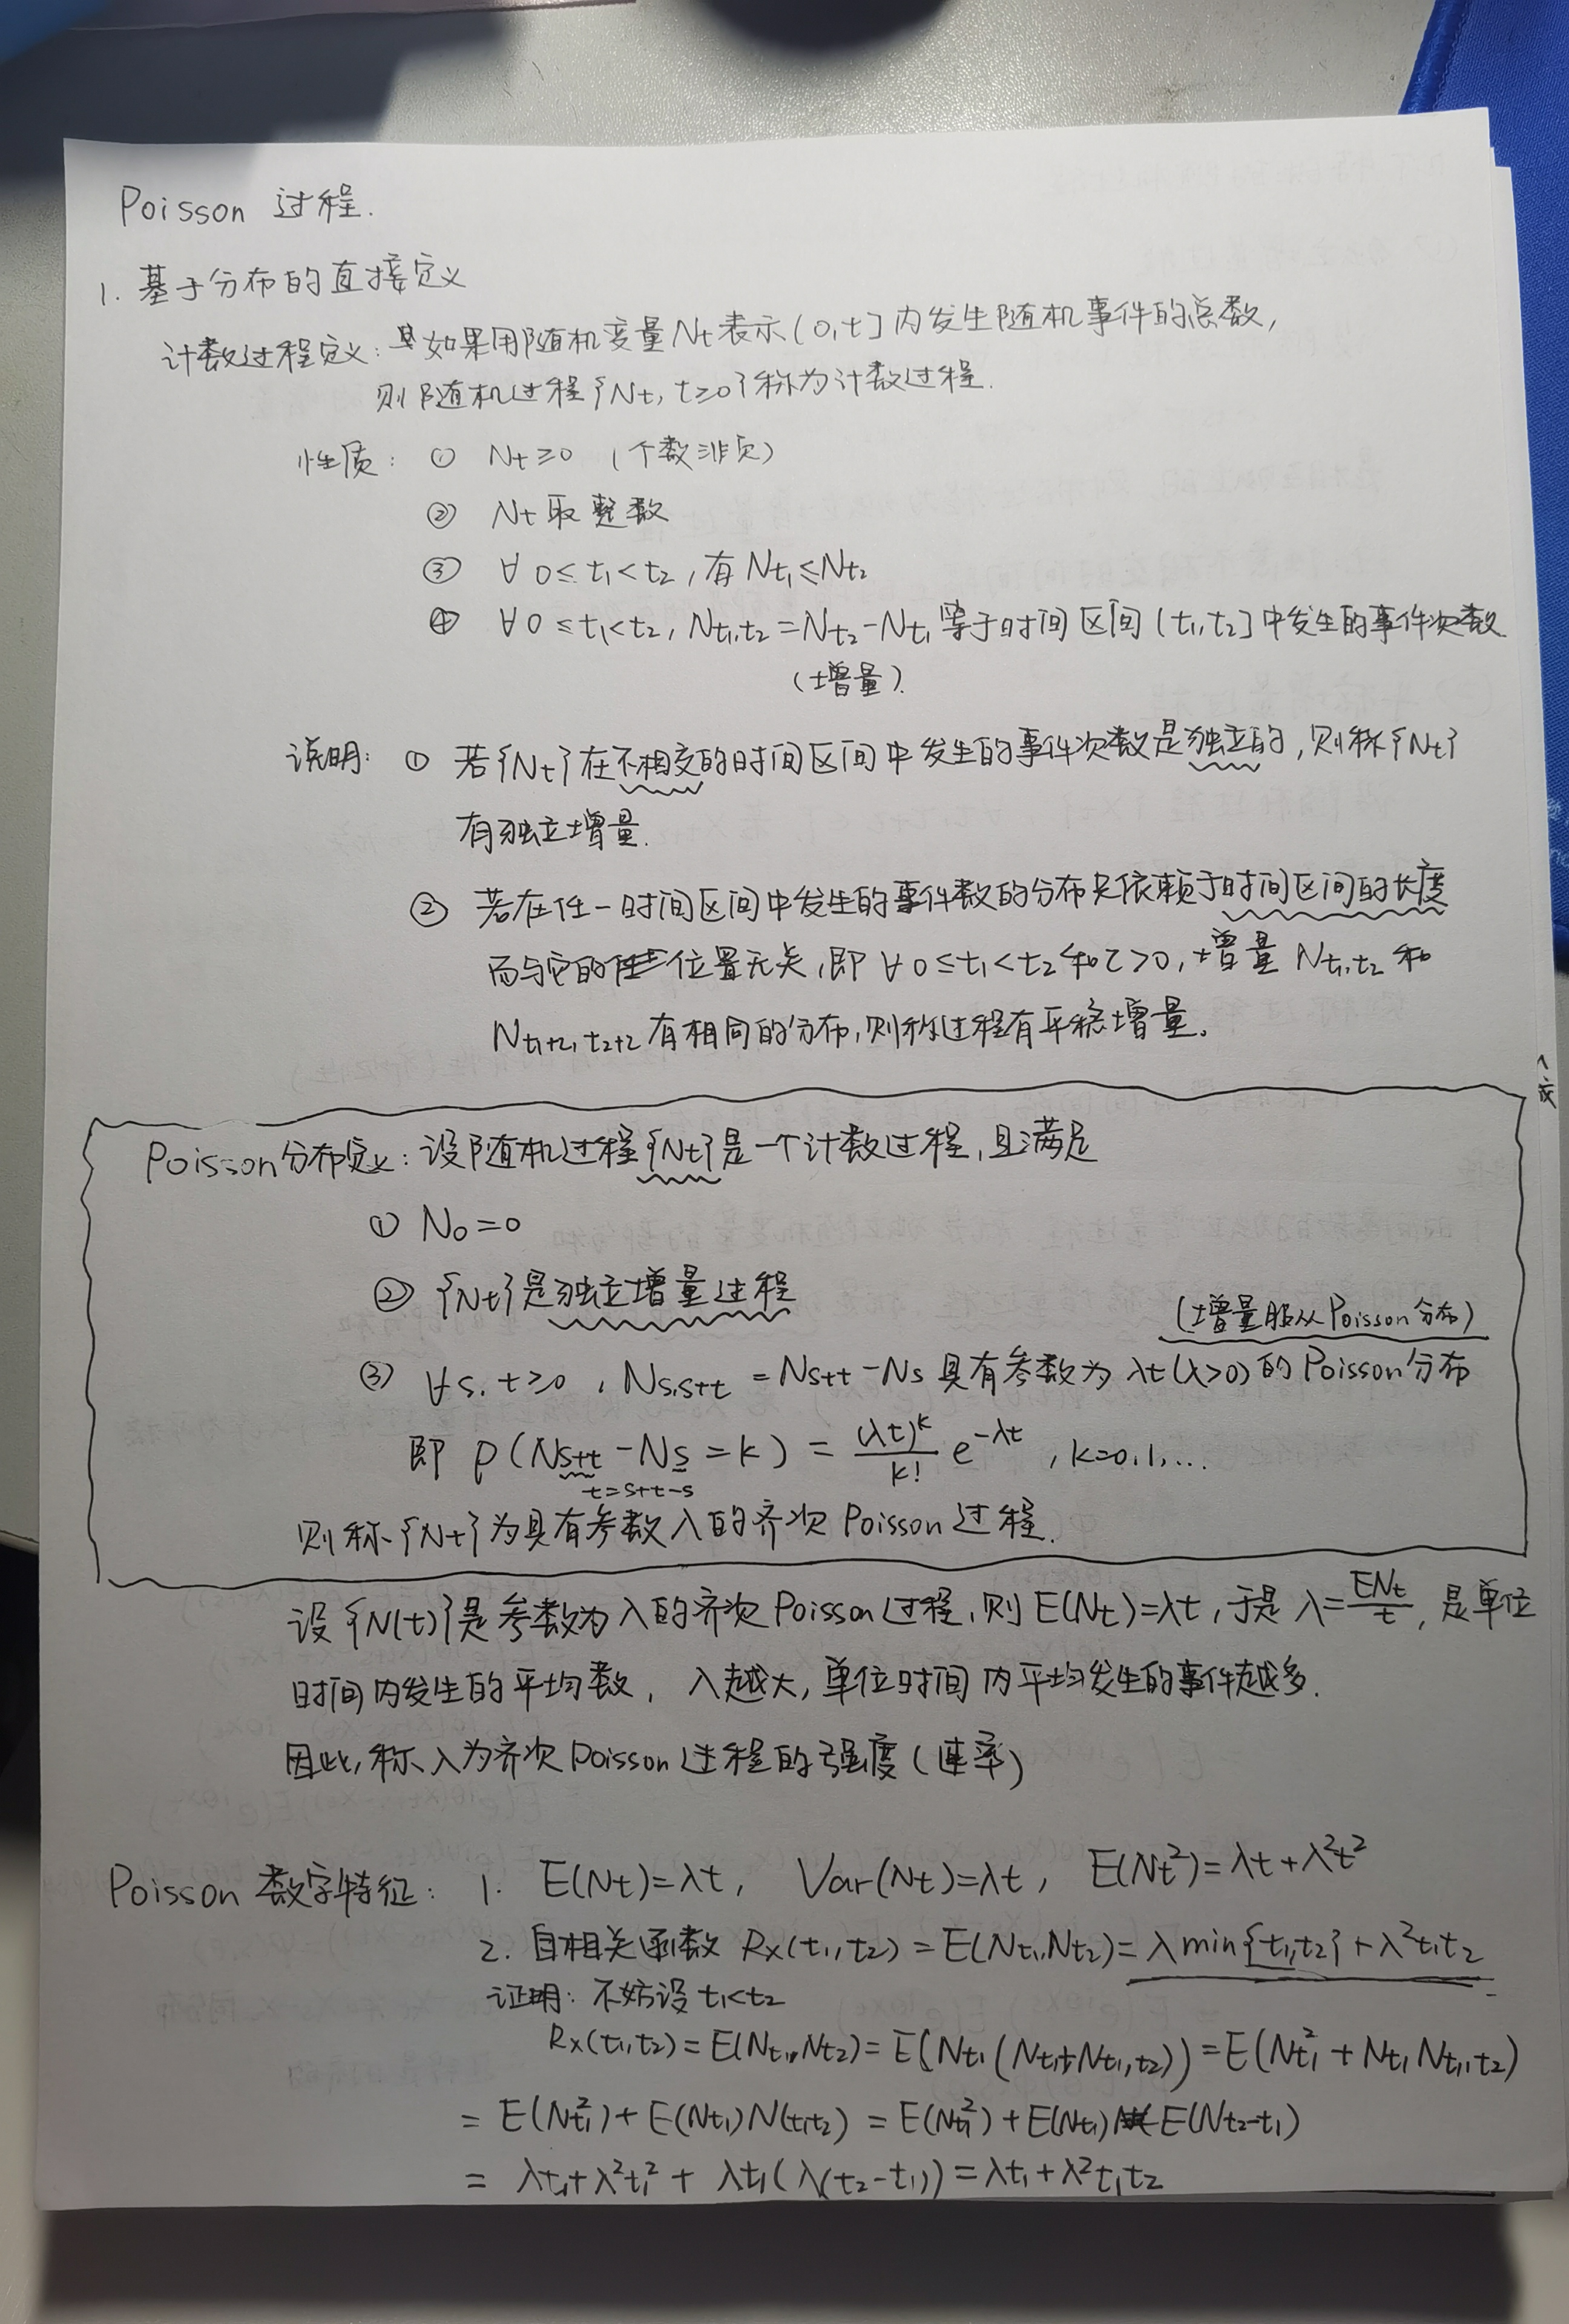 Poisson 过程.
1. 基于分布的直接定义
计数过程定义: 如果用随机变量Nt表示(0,t]内发生随机事件的总数,
则随机过程{Nt, t≥0}称为计数过程.
性质: ① Nt≥0 (个数非负)
② Nt取整数
③ ∀ 0≤t₁<t₂, 有Nt₁≤Nt₂
④ ∀ 0≤t₁<t₂, Nt₁,t₂=Nt₂-Nt₁ 等于时间区间(t₁,t₂]中发生的事件次数.
(增量).
说明: ① 若{Nt}在不相交的时间区间中发生的事件次数是独立的,则称{Nt}
有独立增量.
② 若在任一时间区间中发生的事件数的分布只依赖于时间区间的长度
而与它的位置无关,即∀0≤t₁<t₂和τ>0,增量 Nt₁,t₂ 和
Nt₁+τ,t₂+τ 有相同的分布,则称过程有平稳增量。
Poisson分布定义: 设随机过程{Nt}是一个计数过程,且满足
① N₀=0
② {Nt}是独立增量过程
(增量服从Poisson分布)
③ ∀s,t≥0, Ns,s+t = Ns+t-Ns 具有参数为 λt(λ>0)的Poisson分布
即 P(Ns+t - Ns = k) = (λt)^k/k! e^{-λt}, k=0,1,...
t=s+t-s
则称{Nt}为具有参数λ的齐次 Poisson 过程.
设{N(t)}是参数为λ的齐次Poisson过程,则E(Nt)=λt,于是 λ=ENt/t, 是单位
时间内发生的平均数, λ越大,单位时间内平均发生的事件越多.
因此,称λ为齐次Poisson过程的强度(速率)
Poisson 数字特征: 1. E(Nt)=λt, Var(Nt)=λt, E(Nt²)=λt+λ²t²
2. 自相关函数 Rx(t₁,t₂)=E(Nt₁,Nt₂)=λmin{t₁,t₂}+λ²t₁t₂
证明: 不妨设t₁<t₂
Rx(t₁,t₂)=E(Nt₁,Nt₂)=E(Nt₁(Nt₁+Nt₁,t₂))=E(Nt₁²+Nt₁Nt₁,t₂)
= E(Nt₁²)+E(Nt₁)N(t₁t₂) = E(Nt₁²)+E(Nt₁)E(Nt₂-t₁)
= λt₁+λ²t₁²+λt₁(λ(t₂-t₁))=λt₁+λ²t₁t₂